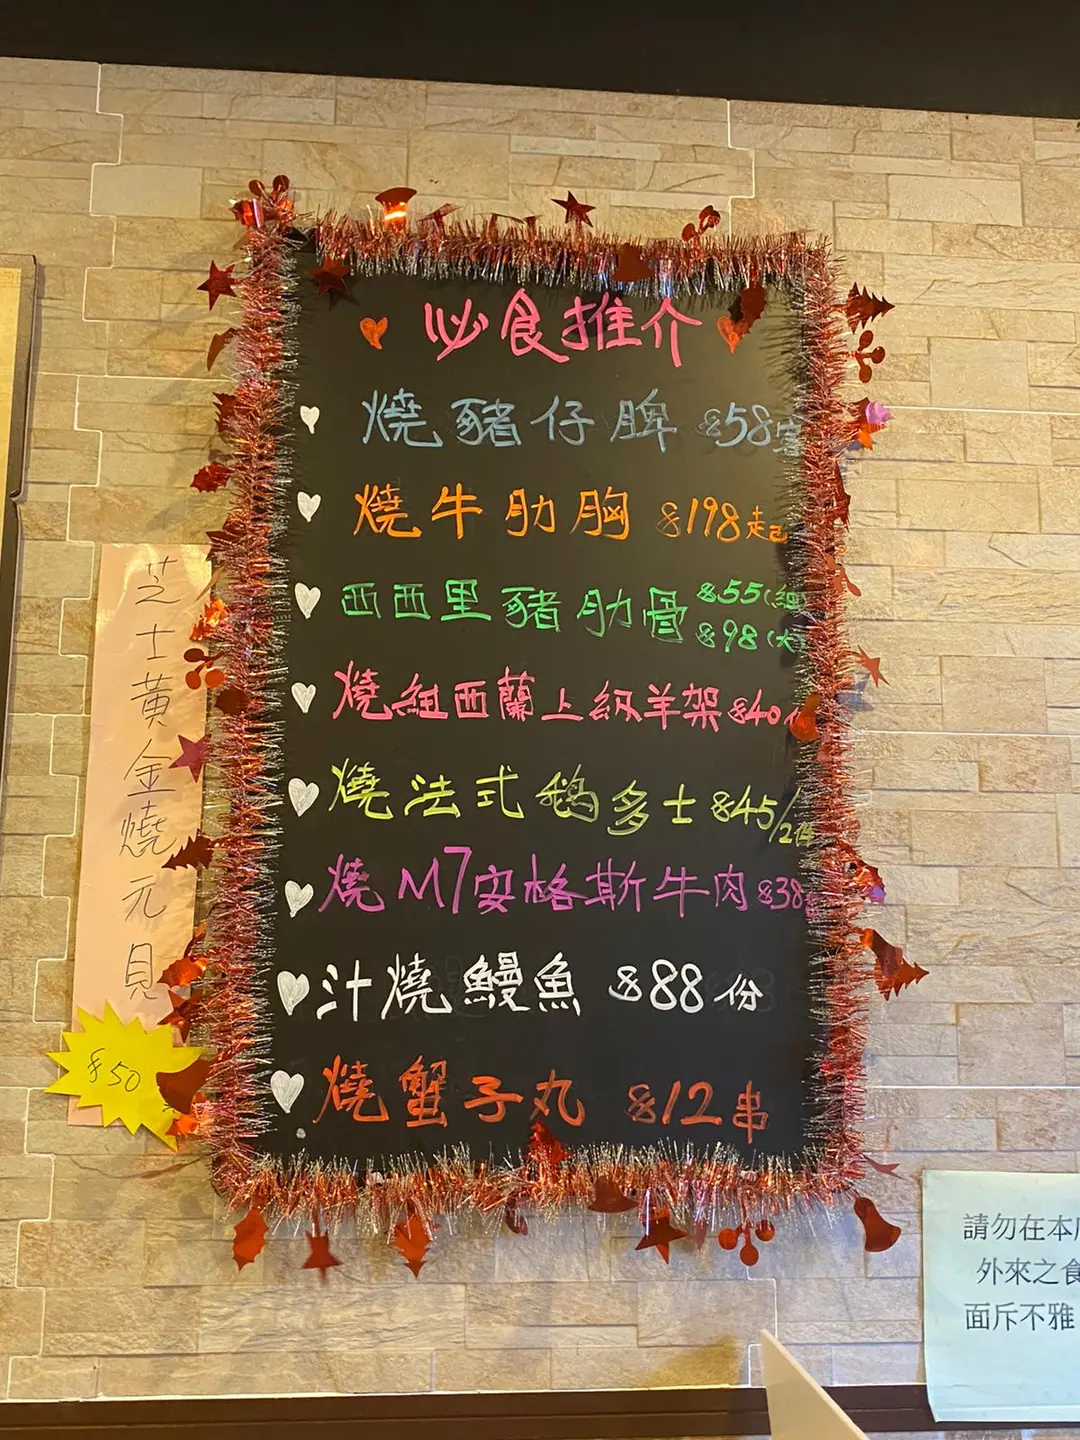 必食推介
燒豬仔脾 $58
燒牛肋胸 $198走起
西西里豬肋骨 $55(細
$98(大
燒紐西蘭上級羊架 $40
燒法式鵝多士 $45/2個
燒M7安格斯牛肉 $38
汁燒鰻魚 $88份
燒蟹子丸 $12串
芝士黃金燒元貝
$50
請勿在本
外來之食
面斥不雅